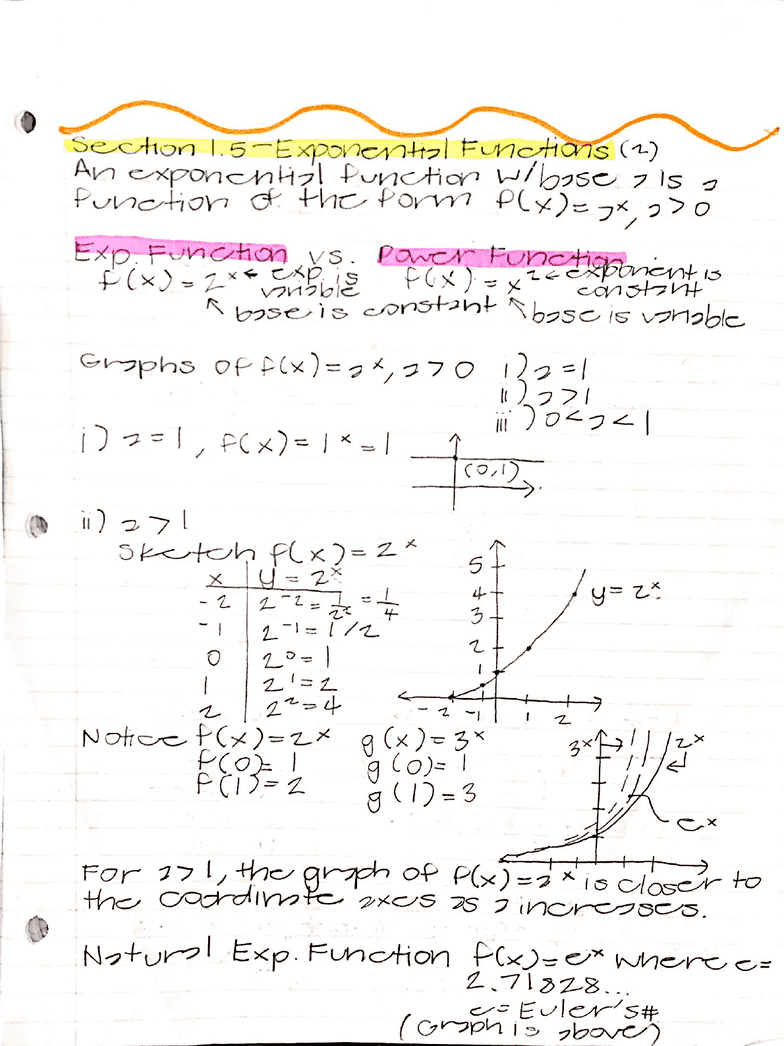 Section 1.5-Exponential Functions (2)
An exponential function w/base a is a
function of the form f(x)=aˣ, a>0
Exp. Function vs. Power Function
f(x)=2ˣ ← exp. is variable f(x)=x² ← exponent is constant
↖ base is constant ↖ base is variable
Graphs of f(x)=aˣ, a>0 i) a=1
ii) a>1
iii) 0<a<1
i) a=1, f(x)=1ˣ=1
(0,1)
ii) a>1
Sketch f(x)=2ˣ
x y=2ˣ
-2 2⁻²=1/2²=1/4
-1 2⁻¹=1/2
0 2⁰=1
1 2¹=2
2 2²=4
5
4
3
2
1
-2 -1 1 2
y=2ˣ
Notice f(x)=2ˣ g(x)=3ˣ
f(0)=1 g(0)=1
f(1)=2 g(1)=3
3ˣ 2ˣ
eˣ
For a>1, the graph of f(x)=aˣ is closer to
the coordinate axes as a increases.
Natural Exp. Function f(x)=eˣ where e=
2.71828...
e=Euler's#
(Graph is above)